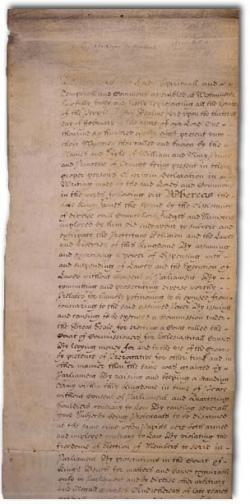 Whereas the Lords Spirituall and
Temporall and Commons assembled at Westminster
lawfully fully and freely representing all the Estates
of the People of this Realme did upon the thirteenth
day of February in the yeare of our Lord One
thousand six hundred eighty eight present unto
their Majesties then called and known by the
Names and Stile of William and Mary Prince
and Princesse of Orange being present in their
proper persons a certain Declaration in
Writing made by the said Lords and Commons
in the words following viz Whereas the
late King James the second by the Assistance
of diverse evill Councellors Judges and Ministers
imployed by him did endeavour to subvert and
extirpate the Protestant Religion and the Lawes
and Liberties of this Kingdome By assuming
and exercising a power of Dispensing with
and suspending of Lawes and the Execution of
Lawes without Consent of Parliament By
committing and prosecuting diverse worthy
Prelates for humbly petitioning to be excused from
concurring to the said assumed Power By issuing
and causing to be executed a Commission under
the Great Seale for erecting a Court called the
Court of Commissioners for Ecclesiasticall Causes
By levying money for and to the use of the Crown
by pretence of Prerogative for other time and in
other manner then the same was granted by
Parliament By raising and keeping a standing
Army within this Kingdome in time of Peace
without consent of Parliament and Quartering
Souldiers contrary to Law By causing severall
good Subjects being Protestants to be disarmed
at the same time when Papists were both armed
and employed contrary to Law By violating the
freedome of Election of Members to serve in
Parliament By prosecutions in the Court of
Kings Bench for matters and causes cognizable
only in Parliament and by diverse other arbitrary
and illegall courses